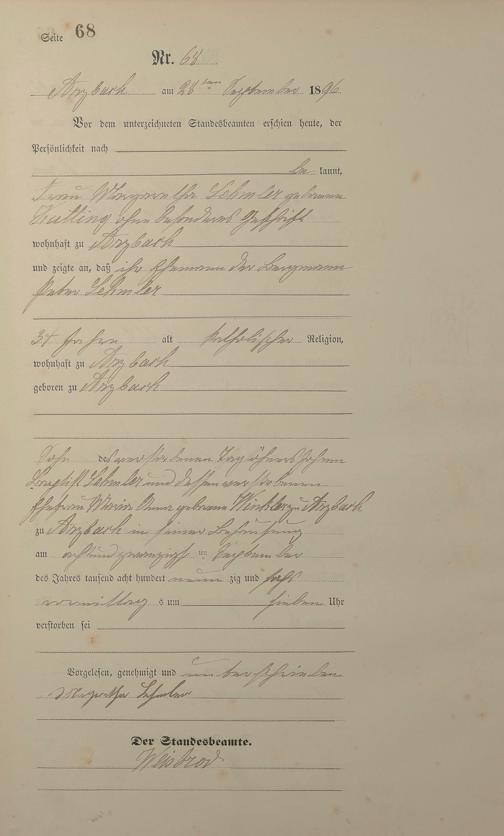 Seite 68
Nr. 68
Arzbach am 28ten September 1896
Vor dem unterzeichneten Standesbeamten erschien heute, der
Persönlichkeit nach
be kannt,
Frau Margaretha Lehmler geborene
ohne besonderes Geschäft
wohnhaft zu Arzbach
und zeigte an, daß ihr Ehemann der Bergmann
Peter Lehmler
34 Jahre alt katholischer Religion,
wohnhaft zu Arzbach
geboren zu Arzbach
Sohn des verstorbenen Tagelöhners
Lehmler und dessen verstorbenen
Ehefrau Maria Anna geborene Winkler zu Arzbach
zu Arzbach in seiner Behausung
am achtundzwanzigsten September
des Jahres tausend acht hundert neun zig und sechs
vormittag s um sieben Uhr
verstorben sei
Vorgelesen, genehmigt und unterschrieben
Margretha Lehmler
Der Standesbeamte.
Weisbrod